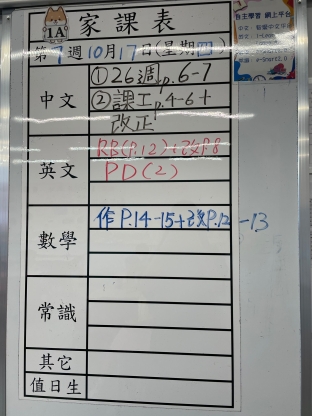 1A
家課表
第7週10月17日(星期四)
自主學習 網上平台
中文
①26週p.6-7
②課工p.4-6+
改正
英文
RB(P.12)+改P.8
PD(2)
數學
作P.14-15+改P.12-13
常識
其它
值日生